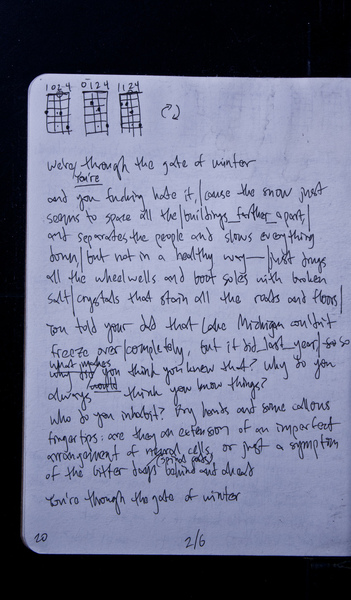 1 0 2 4 0 1 2 4 1 1 2 4
we're through the gate of winter
you're
and you fucking hate it, / cause the snow just
seems to space all the / buildings farther apart /
and separates the people and slows everything
down / but not in a healthy way— / just drugs
all the wheelwells and boot soles with broken
salt / crystals that stain all the roads and floors /
You told your dad that Lake Michigan couldn't
freeze over / completely, but it did last year / so so
what makes
why did you think you knew that? Why do you
would
always think you know things?
Who do you inhabit? Dry hands and some callous
fingertips: are they an extension of an imperfect
arrangement of neural cells, or just a symptom
of the bitter days behind and ahead
You're through the gate of winter
20
2/6